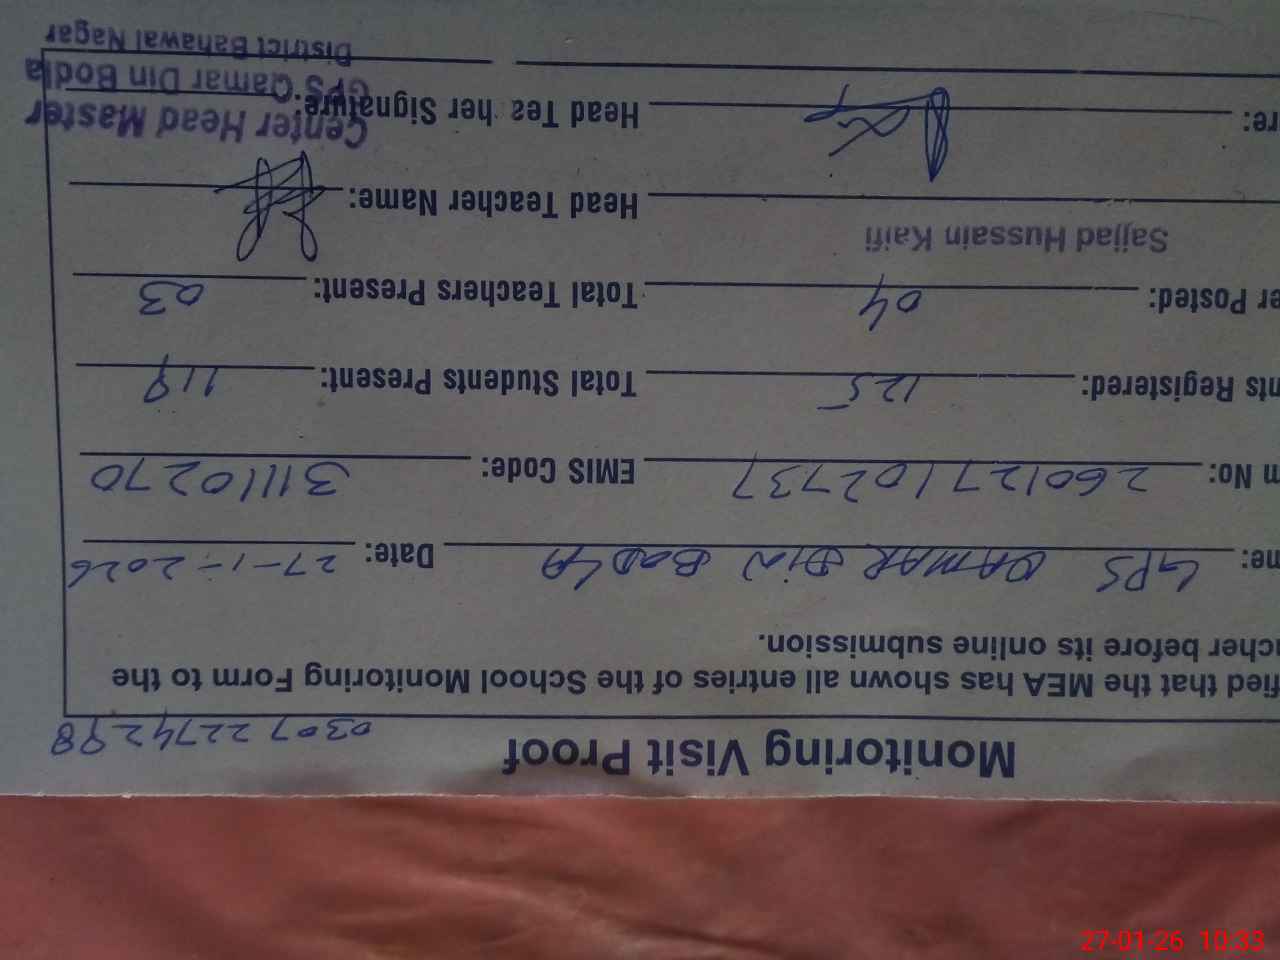 Monitoring Visit Proof
03072274298
fied that the MEA has shown all entries of the School Monitoring Form to the
cher before its online submission.
me: GPS QAMAR DIN BODLA Date: 27-1-2026
m No: 260127102737 EMIS Code: 31110270
nts Registered: 125 Total Students Present: 119
er Posted: 04 Total Teachers Present: 03
Sajjad Hussain Kaifi
Head Teacher Name:
re: Head Teacher Signature:
Center Head Master
GPS Qamar Din Bodla
District Bahawal Nagar
27-01-26 10:33